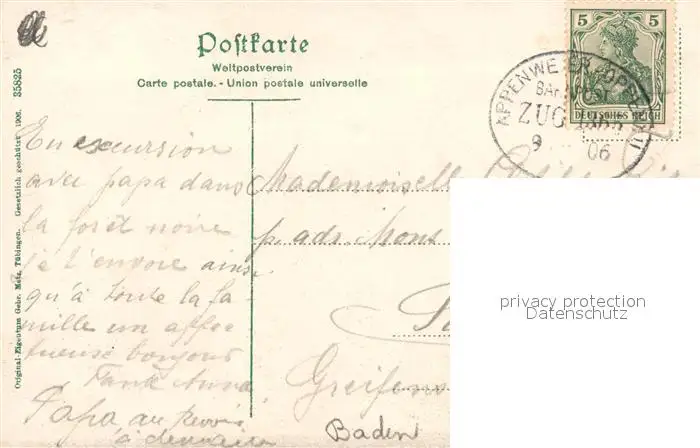 Postkarte
Weltpostverein
Carte postale. - Union postale universelle
5 5
DEUTSCHES REICH
APPENWEIER OPPENAU
ZUG
9 06
Original-Eigentum Gebr. Metz, Tübingen. Gesetzlich geschützt 1906. 35825
En excursion
avec papa dans
la forêt noire
je t'envoie ainsi
qu'à toute la fa-
mille un affec
tueuse bonjour
Anna
Papa au revoir
à demain
Mademoiselle
p. adr. Mons
Baden
privacy protection
Datenschutz